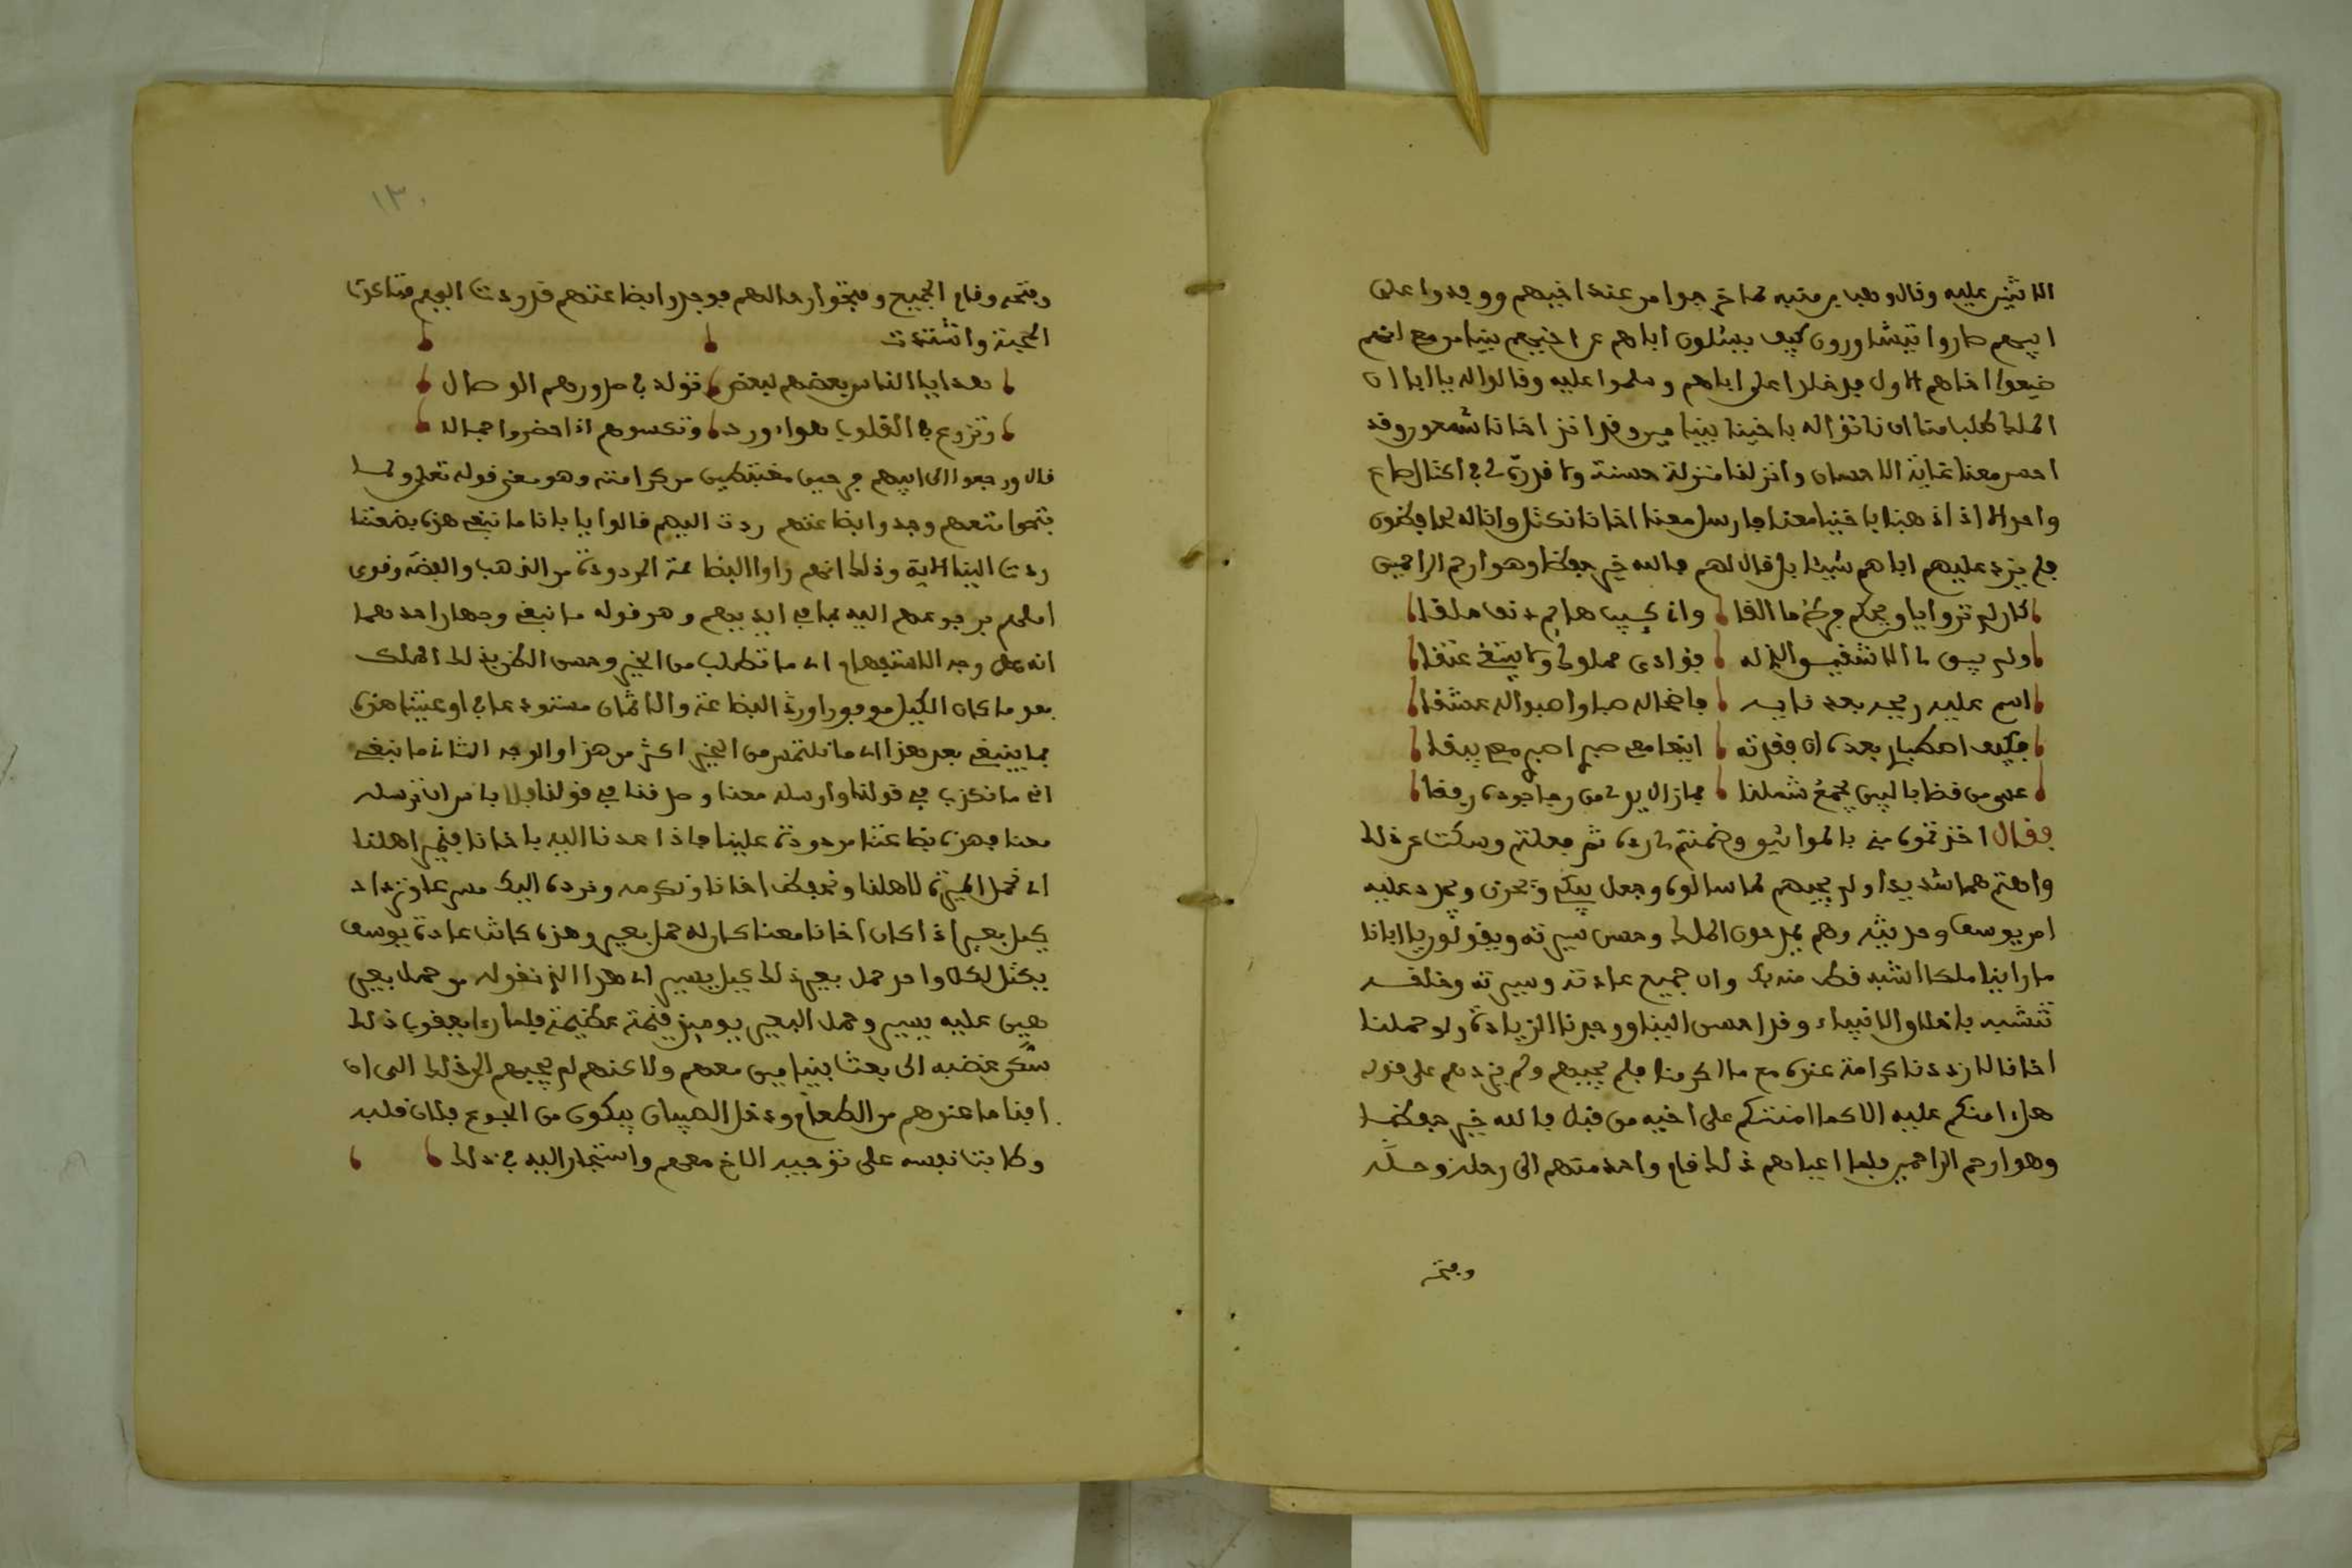 الاثنين عليه وقال وهب بن منبه لما خرجوا من عند اخيهم ووفدوا على
ابيهم صاروا يتشاورون كيف يسئلون اباهم عن اخيهم بنيامين مع انهم
ضيعوا اخاهم الاول فدخلوا على اباهم وسلموا عليه وقالوا له يا ابانا ان
الملك طلب منا ان ناتوا له باخينا بنيامين وقد اخذ اخانا شمعون وقد
احسن معنا غاية الاحسان وانزلنا منزلة حسنة ولا قدر لنا في اكتيال صاع
واحد الا اذا ذهبنا باخينا معنا فارسل معنا اخانا نكتل وانا له لحافظون
فلم يزد عليهم اباهم شيئا بل قال لهم فالله خير حفظا وهو ارحم الراحمين
ولم يبق لا الا الشفيسو الذله فؤادي مملوك ولا يبتغي عتقا
اسم عليه بعد نايه
فكيف اصطباري بعده ان فقدته
عسى من قضا بالبين يجمع شملنا فما زال يرى من رجا جوده رفقا
فقال اخذتموه مني بالمواثيق وضمنتم لي رده ثم فعلتم وسكت عن ذلك
واهتم هما شديدا ولم يجبهم لما سالوه وجعل يبكي ويحزن ويجدد عليه
امر يوسف وحديثه وهم يمدحون الملك وحسن سيرته ويقولون يا ابانا
ما راينا ملكا اشبه قط منه بك وان جميع عادته وسيرته وخلقه
تتشبه باخلاق الانبياء وقد احسن الينا ووجدنا الزيادة ولو حملنا
اخانا لازددنا كرامة عنده مع ما اكرمنا فلم يجبهم ولم يزدهم على قوله
هل امنكم عليه الا كما امنتكم على اخيه من قبل فالله خير حفظا
وهو ارحم الراحمين فلما اعياهم ذلك قام واحد منهم الى رحله وحله
وفتحه
١٣٠
وفتحه وقام الجميع وفتحوا رحالهم فوجدوا بضاعتهم قد ردت اليهم فتاكدت
المحبة واشتدت
بعد ايا الناس بعضهم لبعض تولد في صدورهم الوصال
وتزرع في القلوب هوا وود وتكسوهم اذا حضروا جمالا
قال ورجعوا الى ابيهم فرحين مغتبطين من كرامته وهو معنى قوله تعلى ولما
فتحوا متعهم وجدوا بضاعتهم ردت اليهم قالوا يا ابانا ما نبغي هذه بضعتنا
ردت الينا الاية وذلك انهم راوا البضاعة المردودة من الذهب والفضة وقوى
املهم برجوعهم اليه بما في ايديهم وهو قوله ما نبغي وجهان احدهما
انه على وجه الاستفهام اي ما نطلب من الخير وحسن الظن بذلك الملك
بعد ما كان الكيل موفورا ورد البضاعة والاثمان مستودعا في اوعيتنا هذه
فما ينبغي بعد هذا اي ما نلتمس من الخير اكثر من هذا والوجه الثاني ما نبغي
اي ما نكذب في قولنا وارسله معنا وصدقنا في قولنا فلا باس ان ترسله
معنا فهذه بضاعتنا مردودة علينا فاذا عدنا اليه باخانا فنمير اهلنا
اي نحمل الميرة لاهلنا ونحفظ اخانا ونكرمه ونرده اليك مسرعا ونزداد
كيل بعير اذ اكان اخانا معنا كان له حمل بعير وهذه كانت عادة يوسف
يكتل لكل واحد حمل بعير ذلك كيل يسير اي هذا الذي نقوله من حمل بعير
هين عليه يسير وحمل البعير يومئذ قيمة عظيمة فلما راى يعقوب ذلك
سكن غضبه الى بعث بنيامين معهم ولا كنهم لم يجبهم الى ذلك الى ان
افنا ما عندهم من الطعام ودخل الصبيان يبكون من الجوع فلان قلبه
وطابت نفسه على توجيه الاخ معهم واستجار اليه في ذلك